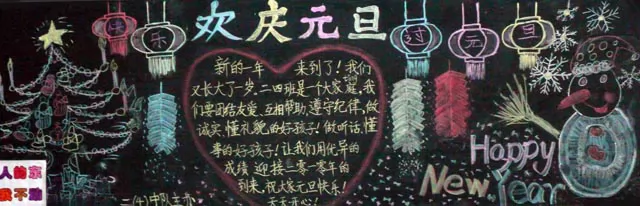 快乐
欢庆元旦
过元旦
新的一年 来到了！我们
又长大了一岁，二四班是一个大家庭，我
们要团结友爱、互相帮助、遵守纪律，做
诚实、懂礼貌的好孩子！做听话，懂
事的好孩子！让我们用优异的
成绩 迎接二零一零年的
到来，祝大家元旦快乐！
天天开心！
Happy
New Year
二(4)中队主办